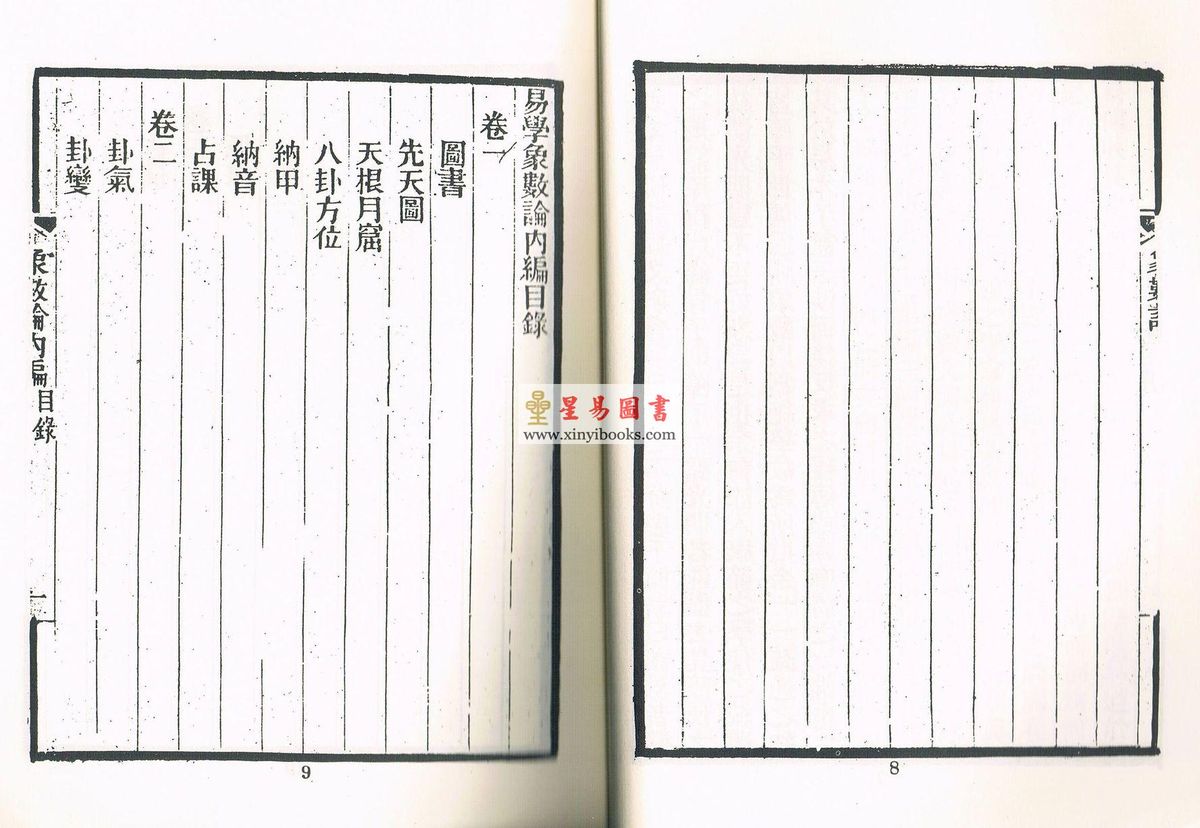 象數論
8
易學象數論內編目錄
卷一
圖書
先天圖
天根月窟
八卦方位
納甲
納音
占課
卷二
卦氣
卦變
象數論內編目錄
一
9
星易圖書
www.xinyibooks.com